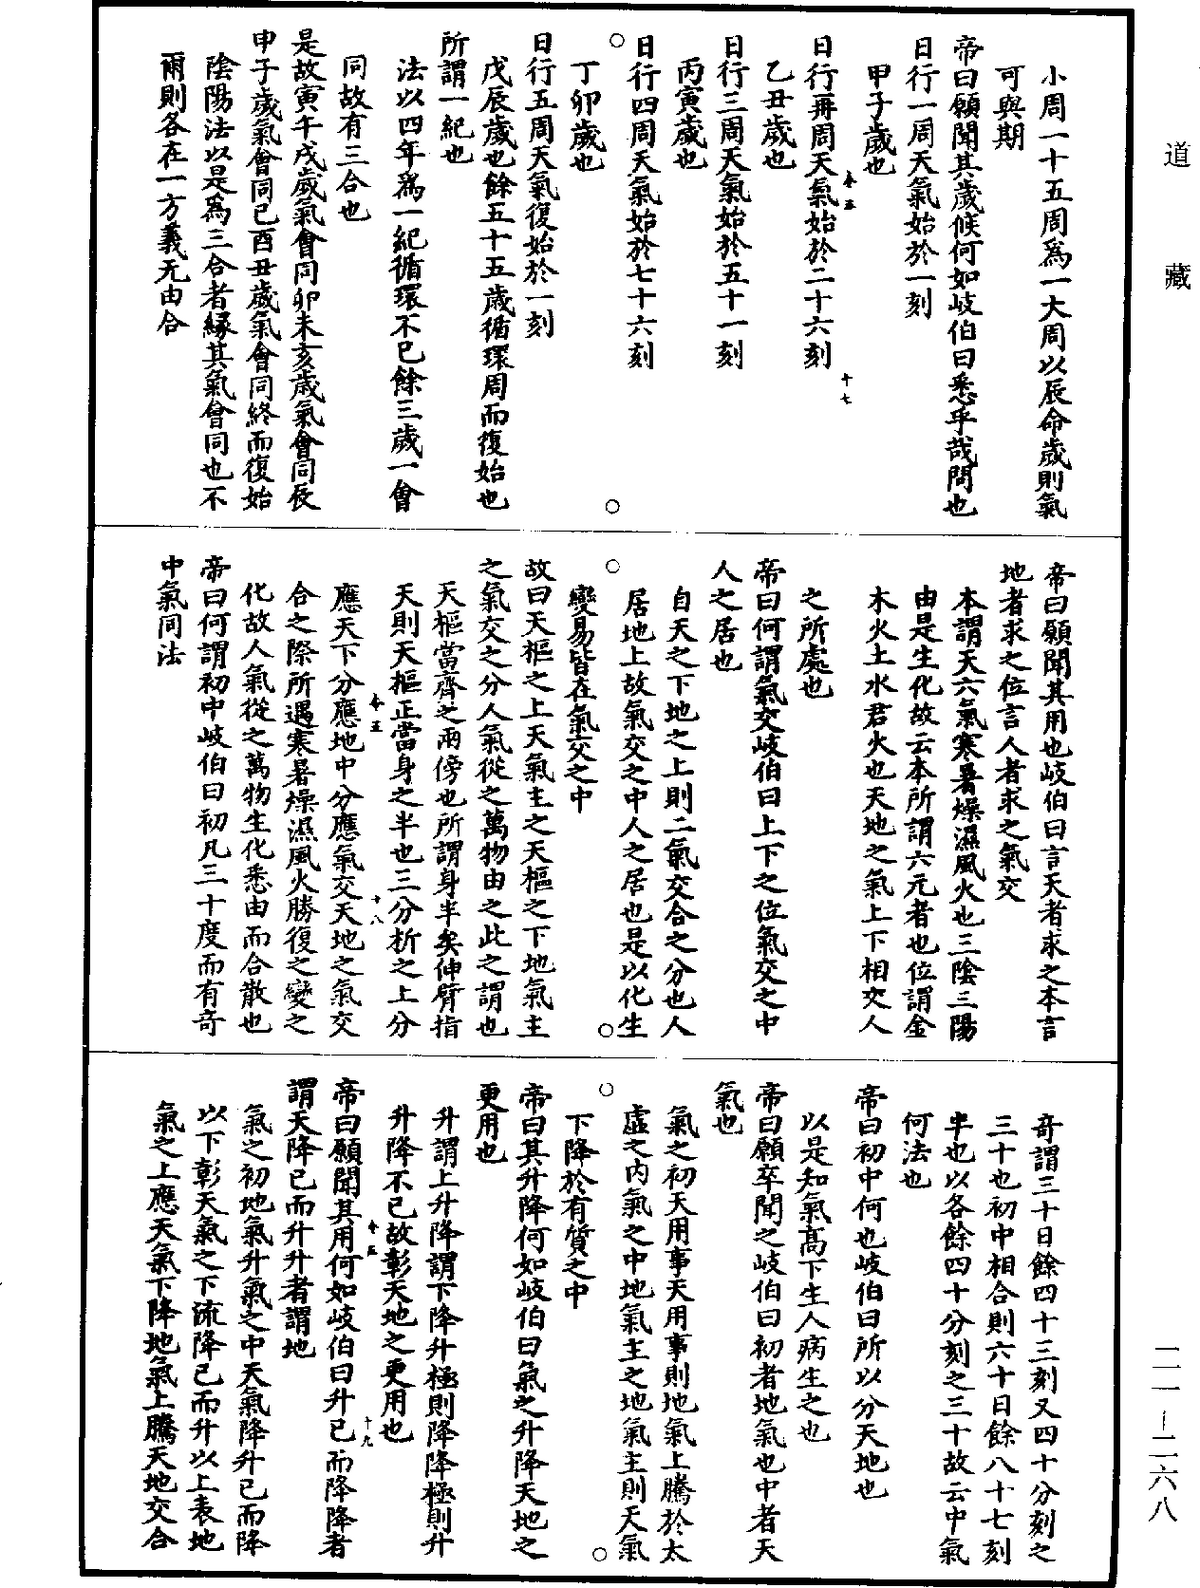 道藏
小周一十五周爲一大周以辰命歲則氣
可與期
帝曰願聞其歲候何如岐伯曰悉乎哉問也
日行一周天氣始於一刻
甲子歲也
日行再周天氣始於二十六刻
乙丑歲也
日行三周天氣始於五十一刻
丙寅歲也
日行四周天氣始於七十六刻
丁卯歲也
日行五周天氣復始於一刻
戊辰歲也餘五十五歲循環周而復始也
所謂一紀也
法以四年爲一紀循環不已餘三歲一會
同故有三合也
是故寅午戌歲氣會同卯未亥歲氣會同辰
申子歲氣會同巳酉丑歲氣會同終而復始
陰陽法以是爲三合者緣其氣會同也不
爾則各在一方義无由合
帝曰願聞其用也岐伯曰言天者求之本言
地者求之位言人者求之氣交
本謂天六氣寒暑燥濕風火也三陰三陽
由是生化故云本所謂六元者也位謂金
木火土水君火也天地之氣上下相交人
之所處也
帝曰何謂氣交岐伯曰上下之位氣交之中
人之居也
自天之下地之上則二氣交合之分也人
居地上故氣交之中人之居也是以化生
變易皆在氣交之中
故曰天樞之上天氣主之天樞之下地氣主
之氣交之分人氣從之萬物由之此之謂也
天樞當齊之兩傍也所謂身半矣伸臂指
天則天樞正當身之半也三分折之上分
應天下分應地中分應氣交天地之氣交
合之際所遇寒暑燥濕風火勝復之變之
化故人氣從之萬物生化悉由而合散也
帝曰何謂初中岐伯曰初凡三十度而有奇
中氣同法
奇謂三十日餘四十三刻又四十分刻之
三十也初中相合則六十日餘八十七刻
半也以各餘四十分刻之三十故云中氣
何法也
帝曰初中何也岐伯曰所以分天地也
以是知氣高下生人病生之也
帝曰願卒聞之岐伯曰初者地氣也中者天
氣也
氣之初天用事天用事則地氣上騰於太
虛之内氣之中地氣主之地氣主則天氣
下降於有質之中
帝曰其升降何如岐伯曰氣之升降天地之
更用也
升謂上升降謂下降升極則降降極則升
升降不已故彰天地之更用也
帝曰願聞其用何如岐伯曰升已而降降者
謂天降已而升升者謂地
氣之初地氣升氣之中天氣降升已而降
以下彰天氣之下流降已而升以上表地
氣之上應天氣下降地氣上騰天地交合
卷五
十七
卷五
十八
卷五
十九
二一－二六八